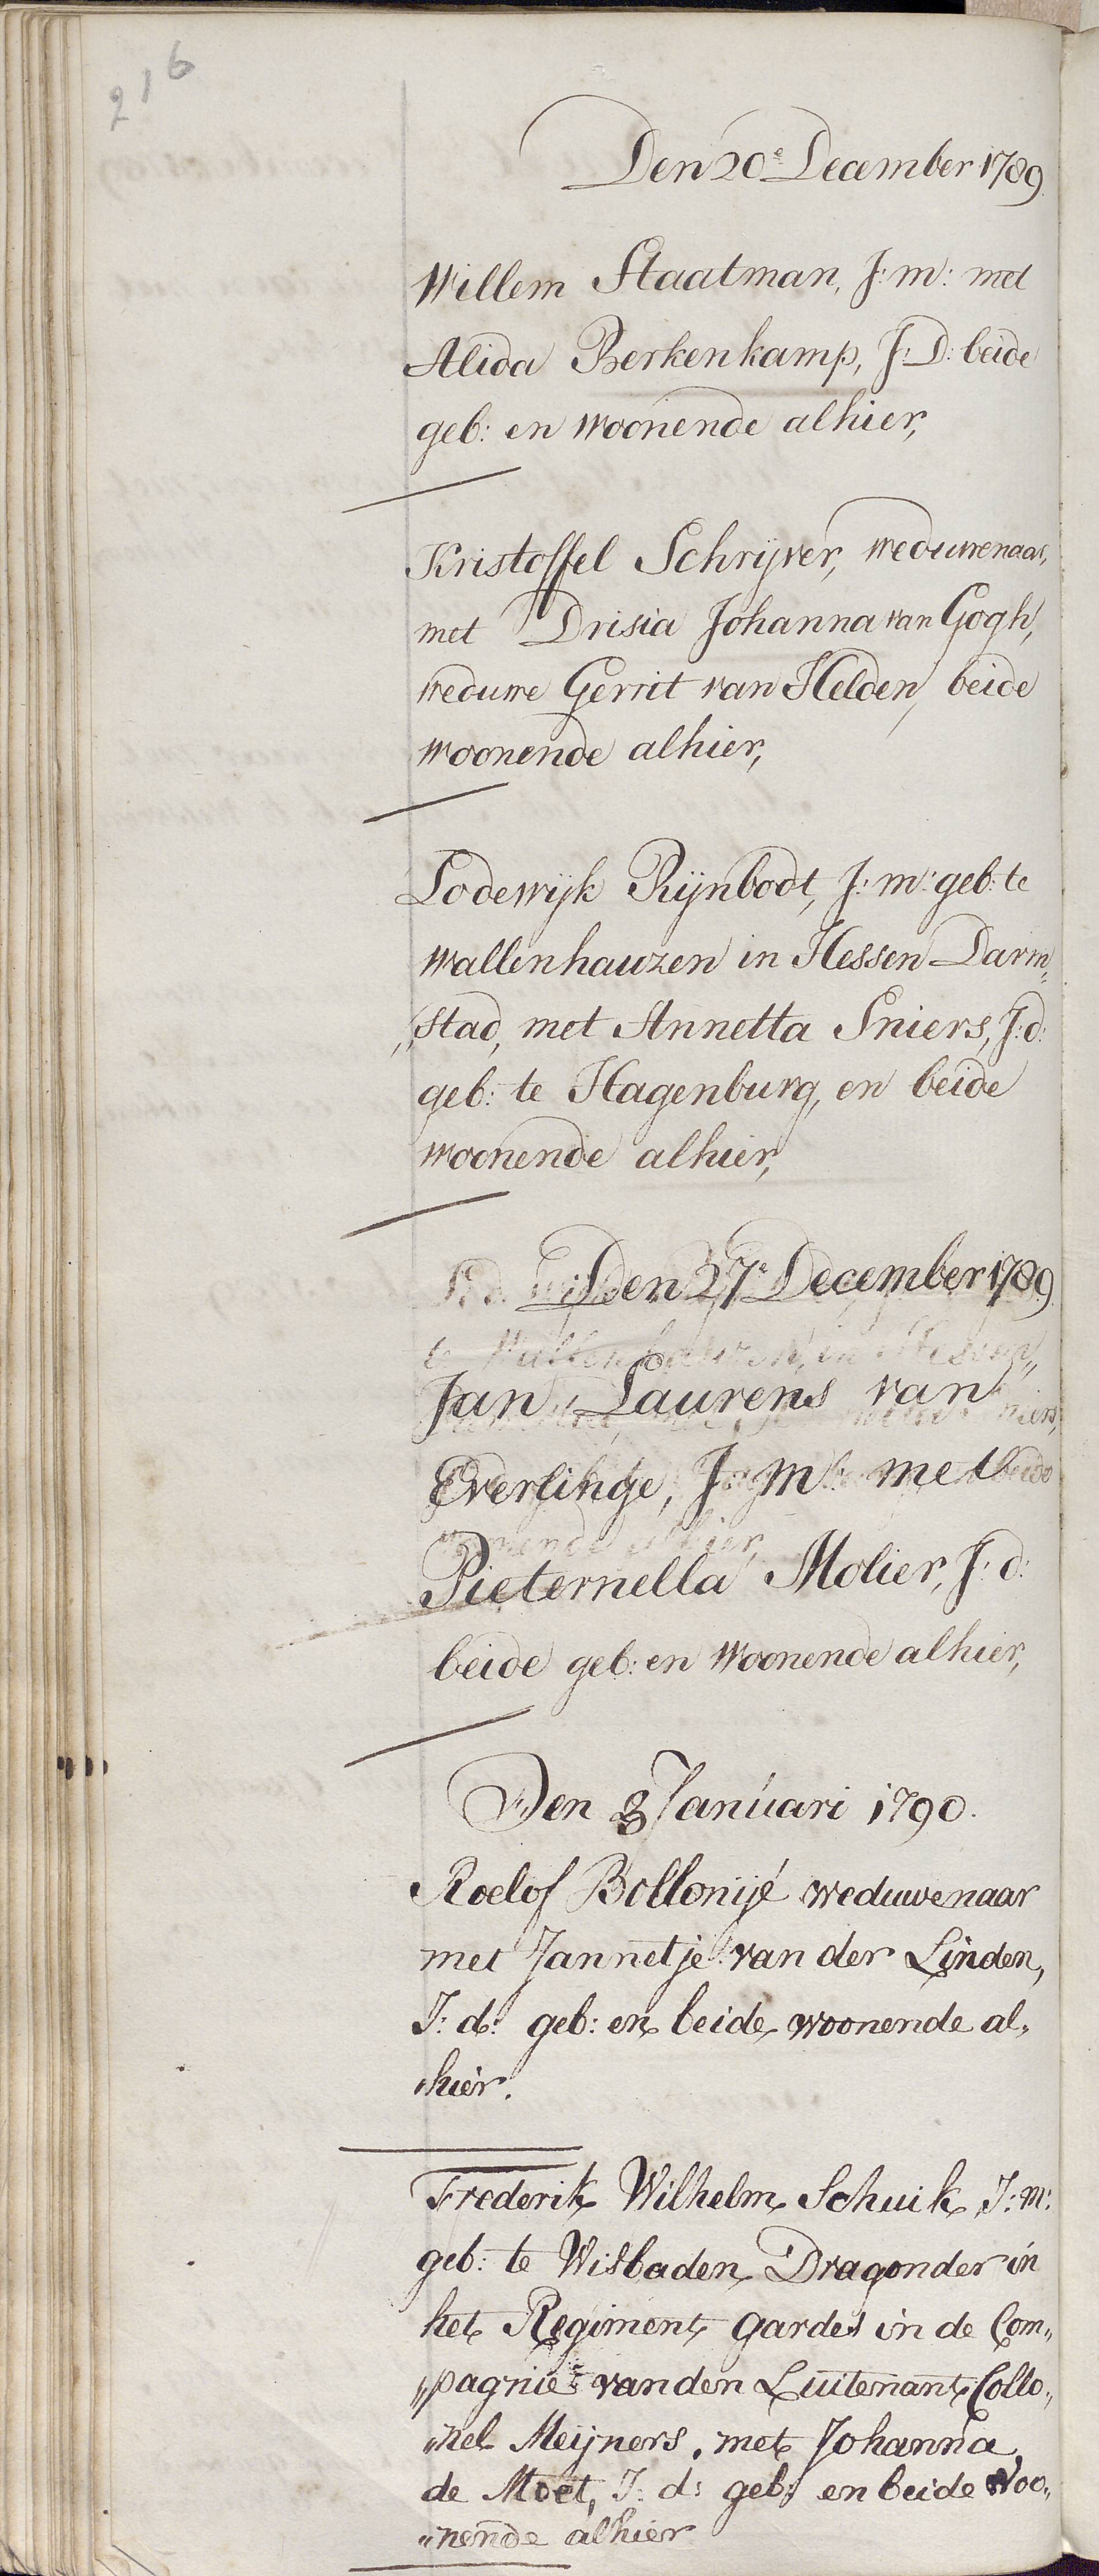 216
Den 20e December 1789
Willem Staatman, J: m: met
Alida Berkenkamp, J: D: beide
geb: en woonende alhier,
Kristoffel Schrijver, weduwenaar,
met Drisia Johanna van Gogh,
weduwe Gerrit van Helden, beide
woonende alhier,
Lodewijk Rijnbodt, J: m: geb: te
Wallenhauzen in Hessen Darm„
„stad, met Annetta Sniers, J: d:
geb: te Hagenburg, en beide
woonende alhier,
Den 27e December 1789
Jan Laurens van
Everlinge, J: m: met
Pieternella Molier, J: d:
beide geb: en woonende alhier,
Den 3 Januari 1790.
Roelof Bollonijé weduwenaar
met Jannetje van der Linden,
J: d: geb: en beide woonende al„
„hier.
Frederik Wilhelm Schuik J: m:
geb: te Wisbaden Dragonder in
het Regiment gardes in de Com„
„pagnie van den Luitenant Collo„
„nel Meijners, met Johanna
de Moet, J: d: geb: en beide woo„
„nende alhier